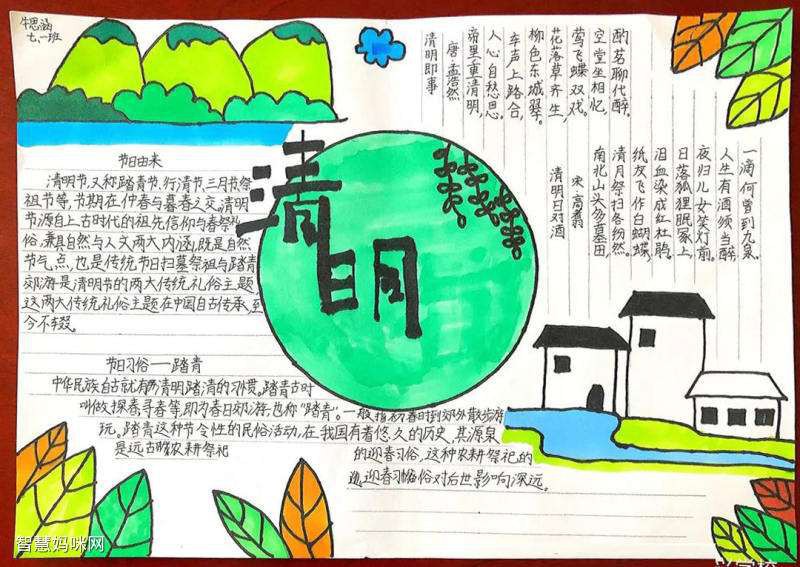 牛思涵
七、一班
清明
节日由来
清明节,又称踏青节、行清节、三月节、祭
祖节等,节期在仲春与暮春之交。清明
节源自上古时代的祖先信仰与春祭礼
俗,兼具自然与人文两大内涵,既是自然
节气点,也是传统节日扫墓祭祖与踏青
郊游是清明节的两大传统礼俗主题
这两大传统礼俗主题在中国自古传承,至
今不辍。
清明即事
唐 孟浩然
帝里重清明,
人心自愁思。
车声上路合,
柳色东城翠。
花落草齐生,
莺飞蝶双戏。
空堂坐相忆,
酌茗聊代醉。
清明日对酒
宋 高翥
南北山头多墓田
清月祭扫各纷然。
纸灰飞作白蝴蝶
泪血染成红杜鹃。
日落狐狸眠冢上,
夜归儿女笑灯前。
人生有酒须当醉
一滴何曾到九泉。
节日习俗——踏青
中华民族自古就有清明踏清的习惯。踏青古时
叫做探春寻春等,即为春日郊游,也称"踏青"。一般指初春时到郊外散步游
玩。踏青这种节令性的民俗活动,在我国有着悠久的历史,其源泉
是远古农耕祭祀的迎春习俗,这种农耕祭祀的
迎春习俗对后世影响深远。
智慧妈咪网